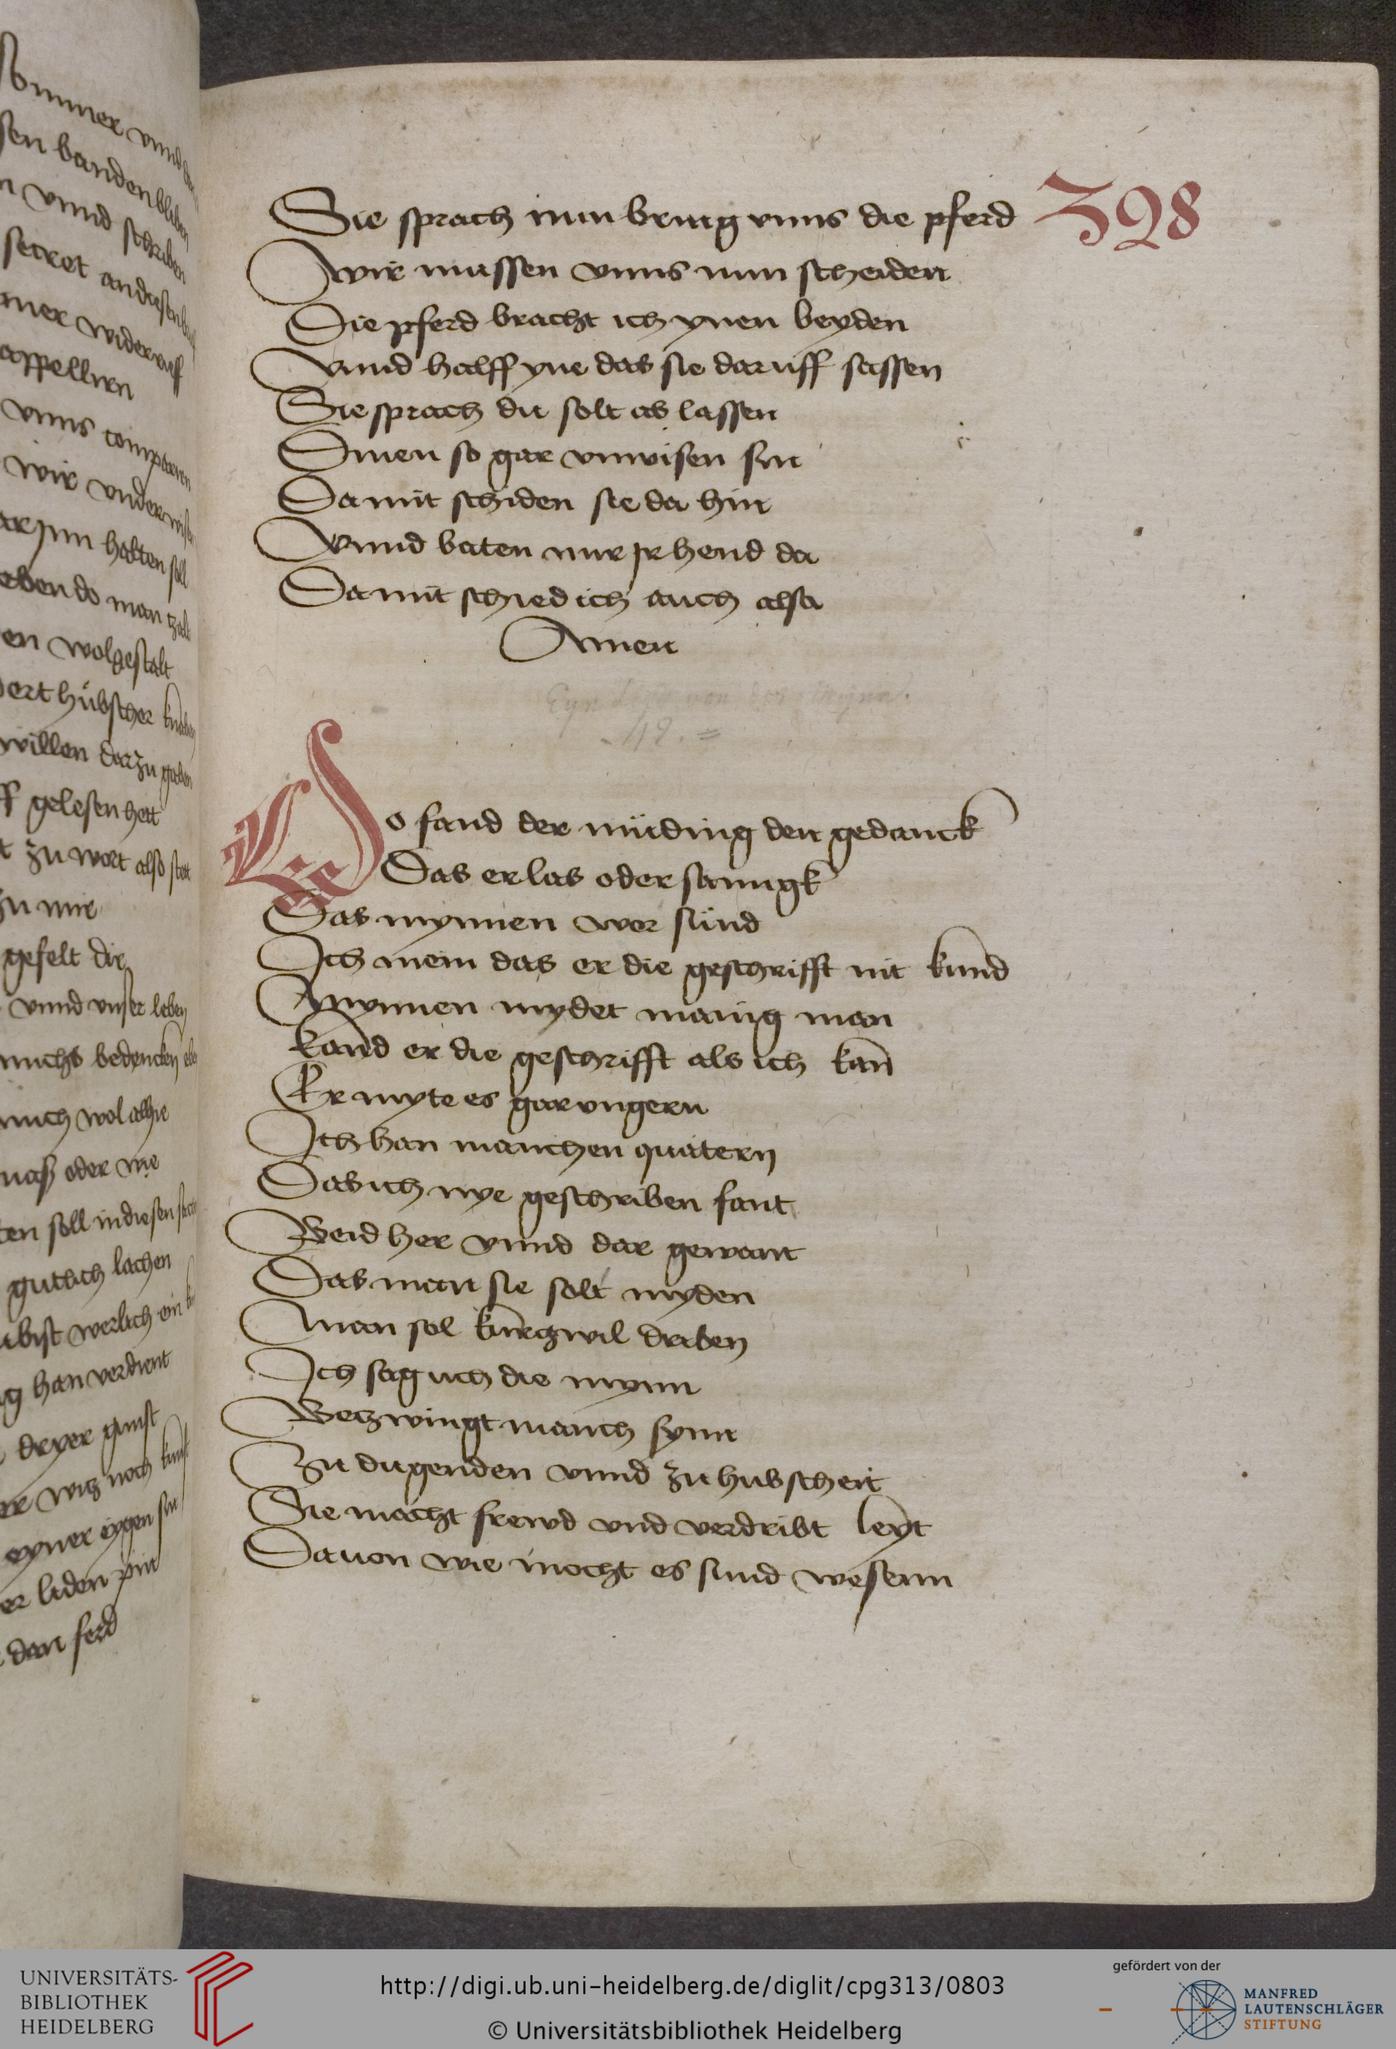 Sie sprach nun bring vnns die pferd
398
Wir mussen vnns nun scheiden
Die pferd bracht ich ynen beyden
Vnnd halff yne das sie daruff sassen
Sie sprach du solt ab lassen
Dinen so gar vnwisen sin
Da mit schiden sie da hin
Vnnd baten mir jr hend da
Da mit schied ich auch alsa
Amen
Eyn von der Mynne.
48.
Wo fand der müding den gedanck
Das er las oder sanngk
Das mynnen wer sünd
Ich mein das er die geschrifft nit kund
Mynnen mydet manig man
Kand er die geschrifft als ich kan
Er myte es gar vngern
Ich han manchen quatern
Das ich nye geschriben fant
Beid her vnnd dar gewant
Das man sie solt myden
Man sol kurczwil driben
Ich sag uch die mynn
Beczwingt manch synn
Zu dugenden vnnd zu hubscheit
Sie macht frewd vnd verdribt leyt
Dauon wie mocht es sund wesenn
sommer vnnd
sen banden bliben
n vnnd schriben
secret an disen
mer widerruff
appelliren
vnns
wir vnder
ar jnn halten soll
eben do man
en wolgestalt
dert hübscher
willen darzu
ff gelesen hett
t zu wort also stet
zu mir
gefelt dir
vnnd vnser leben
nichs bedencken
mich wol alhie
was oder wie
ten soll in diesen
gutlich lachen
bist werlich ein
g han verdient
dryer gunst
er wicz noch
eyner eygen sin
er liden pin
dan ferd
UNIVERSITÄTS-
BIBLIOTHEK
HEIDELBERG
http://digi.ub.uni-heidelberg.de/diglit/cpg313/0803
© Universitätsbibliothek Heidelberg
gefördert von der
MANFRED
LAUTENSCHLÄGER
STIFTUNG